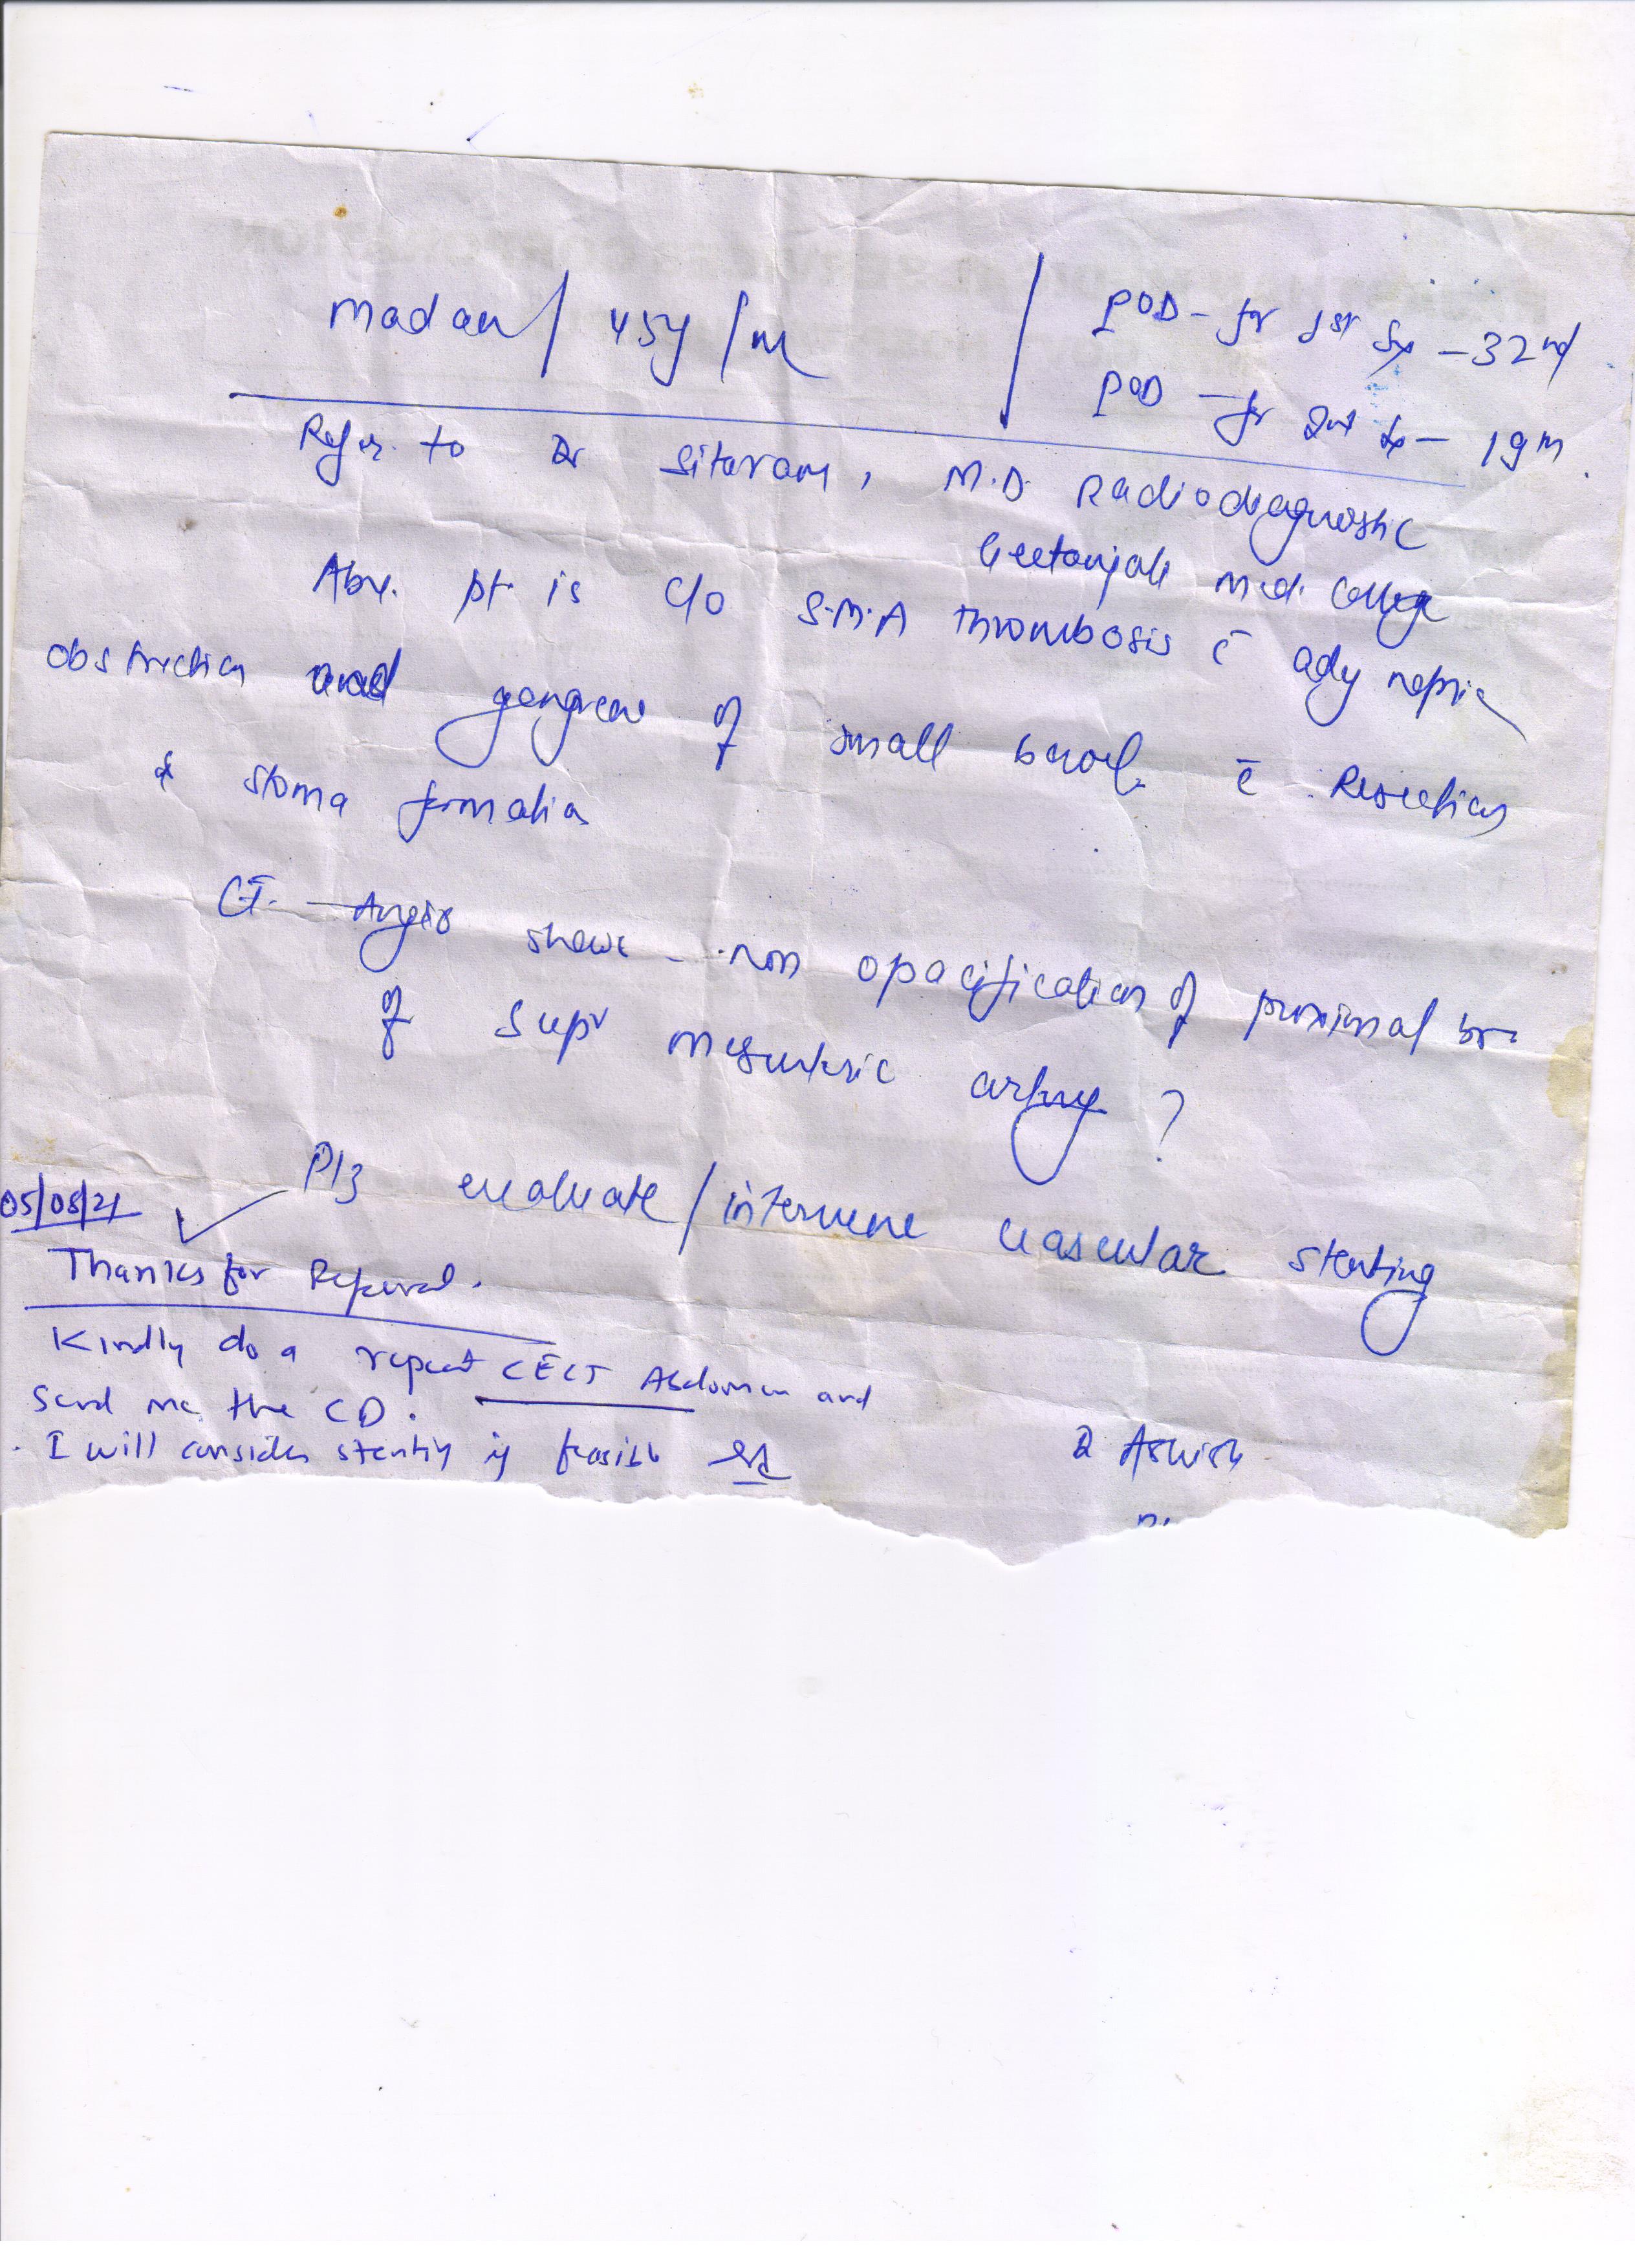 Madan / 45y / M
POD - for 1st Sx - 32nd
POD - for 2nd Sx - 19th
Refer to Dr Sitaram, M.D. Radiodiagnostic
Geetanjali Med. College
Abv. pt is c/o S.M.A thrombosis c̄
obstruction and gangrene of small bowel c̄ Resection
& stoma formation
CT - Angio shows - non opacification of proximal br.
of Supr mesenteric artery ?
Plz evaluate / intervene vascular stenting
05/08/21
Thanks for Referral.
Kindly do a repeat CECT Abdomen and
send me the CD.
I will consider stenting if feasible
Dr Ashish